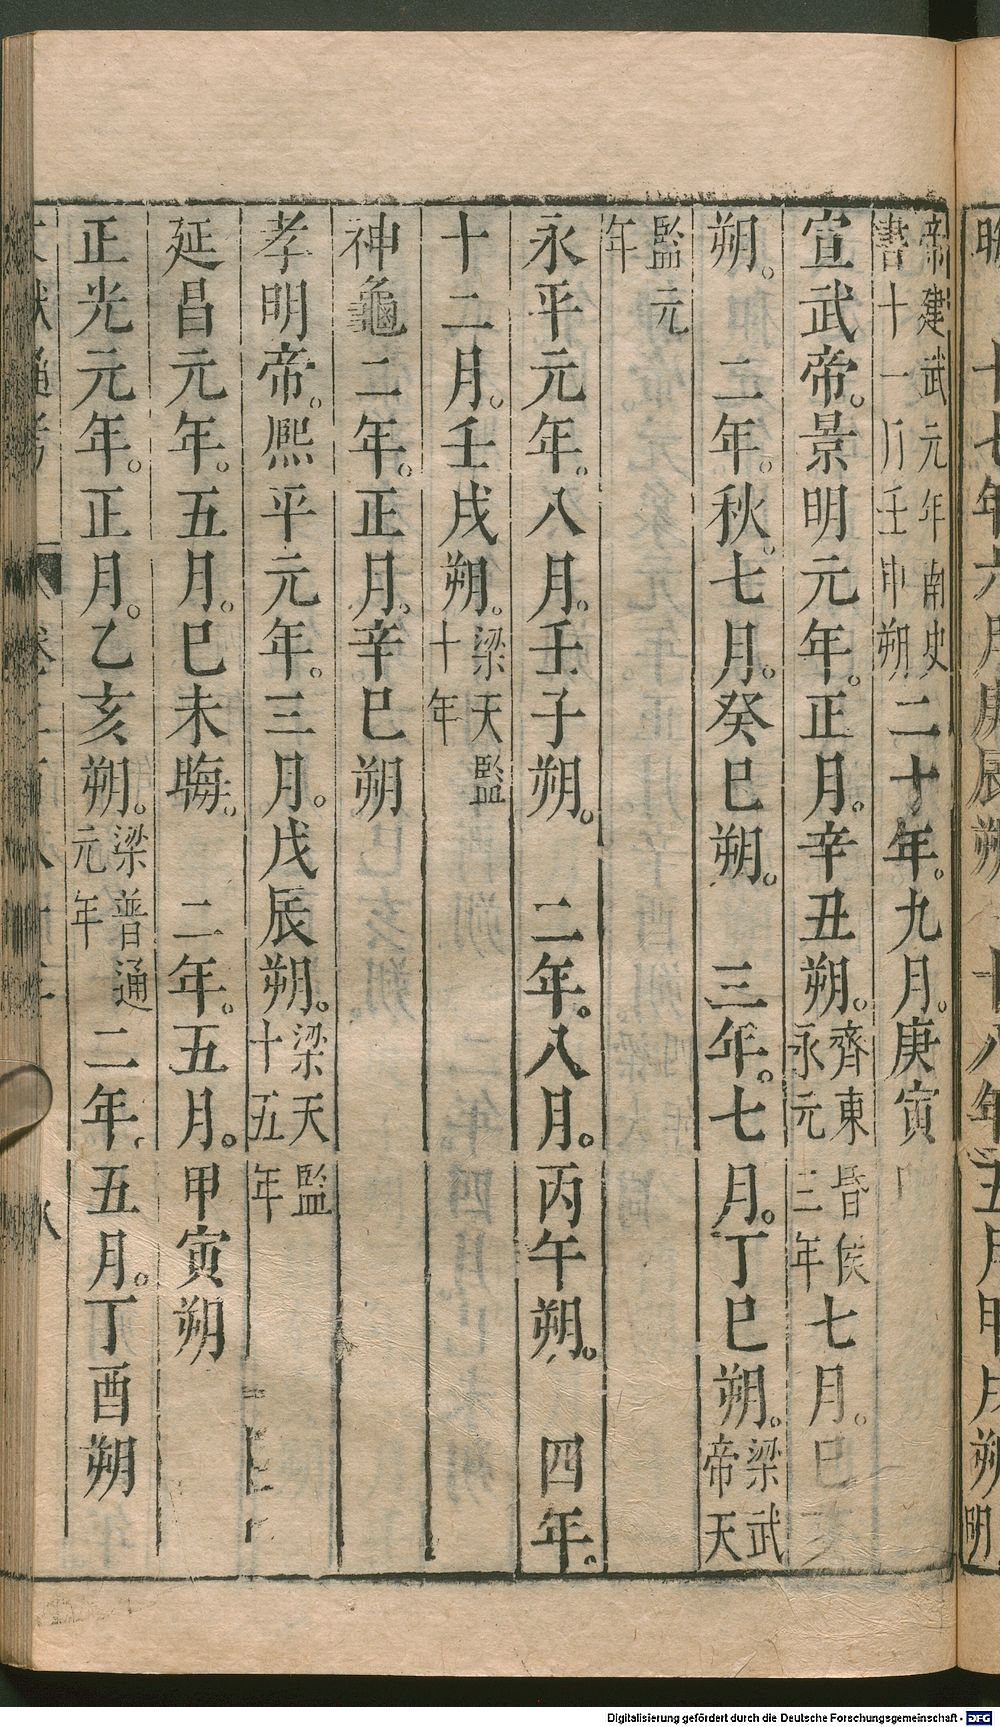 帝建武元年南史書十一月壬申朔二十年。九月。庚寅
宣武帝。景明元年。正月。辛丑朔。齊東昏侯永元三年七月。巳亥
朔。 二年。秋。七月。癸巳朔。 三年。七月。丁巳朔。梁武帝天
監元年
永平元年。八月。壬子朔。 二年。八月。丙午朔。 四年。
十二月。壬戌朔。梁天監十年
神龜二年。正月。辛巳朔
孝明帝。熙平元年。三月。戊辰朔。梁天監十五年
延昌元年。五月。巳未晦。 二年。五月。甲寅朔
正光元年。正月。乙亥朔。梁普通元年二年。五月。丁酉朔
Digitalisierung gefördert durch die Deutsche Forschungsgemeinschaft - DFG